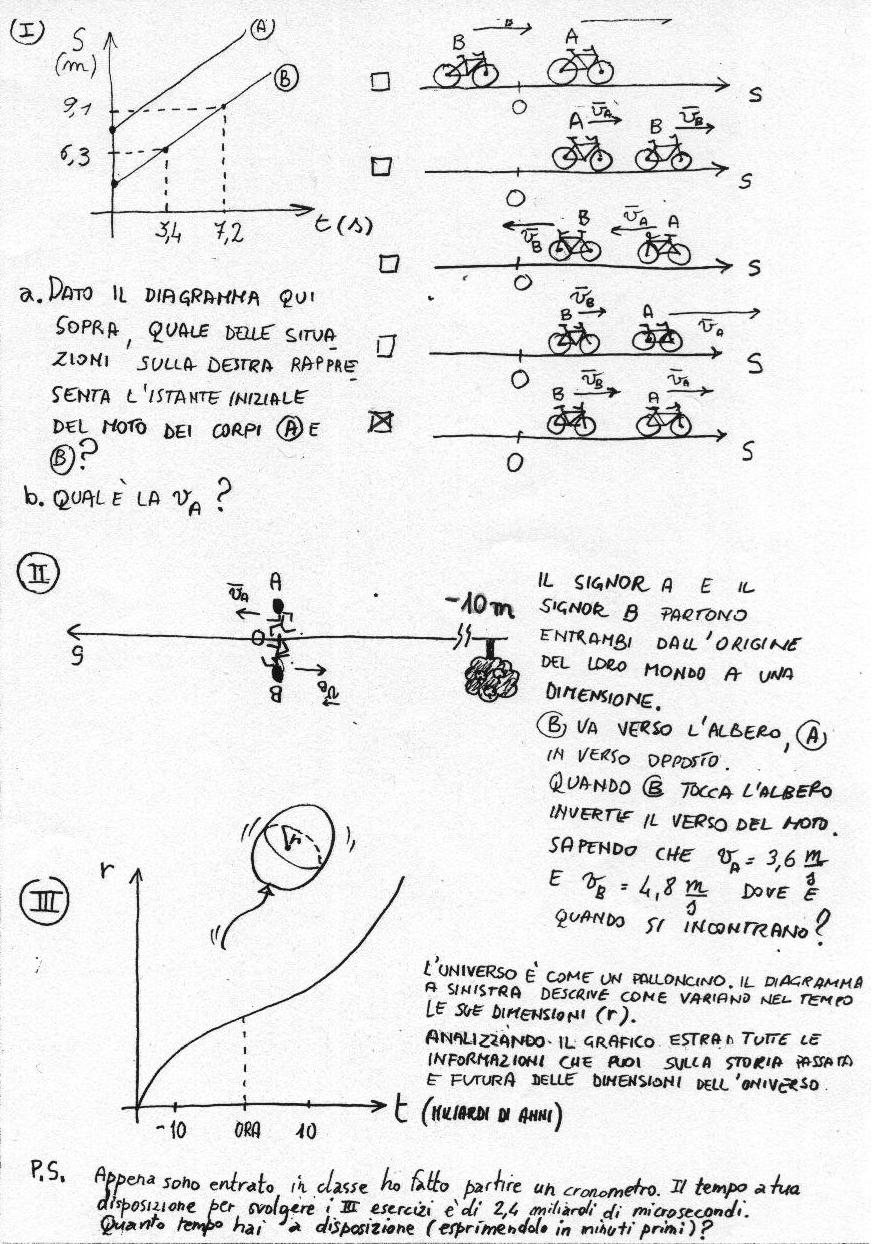 (I)
S
(m)
A
B
9,1
6,3
3,4
7,2
t(s)
B
B
A
O
S
A
v̄A
B
v̄B
O
S
v̄B
B
v̄A
A
O
S
v̄B
B
A
v̄A
O
S
B
v̄B
A
v̄A
O
S
a. DATO IL DIAGRAMMA QUI
SOPRA, QUALE DELLE SITUA
ZIONI SULLA DESTRA RAPPRE
SENTA L'ISTANTE INIZIALE
DEL MOTO DEI CORPI (A) E
(B)?
b. QUAL È LA vA?
(II)
v̄A
A
O
S
B
v̄B
-10 m
IL SIGNOR A E IL
SIGNOR B PARTONO
ENTRAMBI DALL'ORIGINE
DEL LORO MONDO A UNA
DIMENSIONE.
(B) VA VERSO L'ALBERO, (A)
IN VERSO OPPOSTO.
QUANDO (B) TOCCA L'ALBERO
INVERTE IL VERSO DEL MOTO.
SAPENDO CHE vA = 3,6 m/s
E vB = 4,8 m/s DOVE E
QUANDO SI INCONTRANO?
(III)
r
r
-10
ORA
10
t (MILIARDI DI ANNI)
L'UNIVERSO È COME UN PALLONCINO. IL DIAGRAMMA
A SINISTRA DESCRIVE COME VARIANO NEL TEMPO
LE SUE DIMENSIONI (r).
ANALIZZANDO IL GRAFICO ESTRAI TUTTE LE
INFORMAZIONI CHE PUOI SULLA STORIA PASSATA
E FUTURA DELLE DIMENSIONI DELL'UNIVERSO.
P.S. Appena sono entrato in classe ho fatto partire un cronometro. Il tempo a tua
disposizione per svolgere i III esercizi è di 2,4 miliardi di microsecondi.
Quanto tempo hai a disposizione (esprimendolo in minuti primi)?